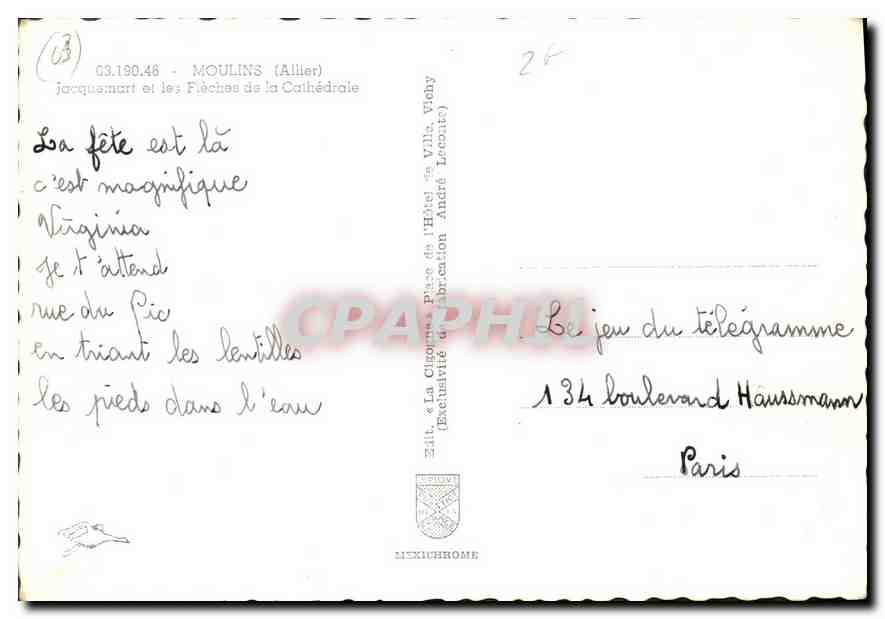 03
2F
03.190.46 - MOULINS (Allier)
Jacquemart et les Flèches de la Cathédrale
La fête est là
c'est magnifique
Virginia
Je t'attend
rue du Pic
en triant les lentilles
les pieds dans l'eau
Edit. «La Cigogne» Place de l'Hôtel de Ville, Vichy
(Exclusivité de fabrication André Leconte)
CPAPHIL
Le jeu du télégramme
134 boulevard Haussmann
Paris
MEXICHROME